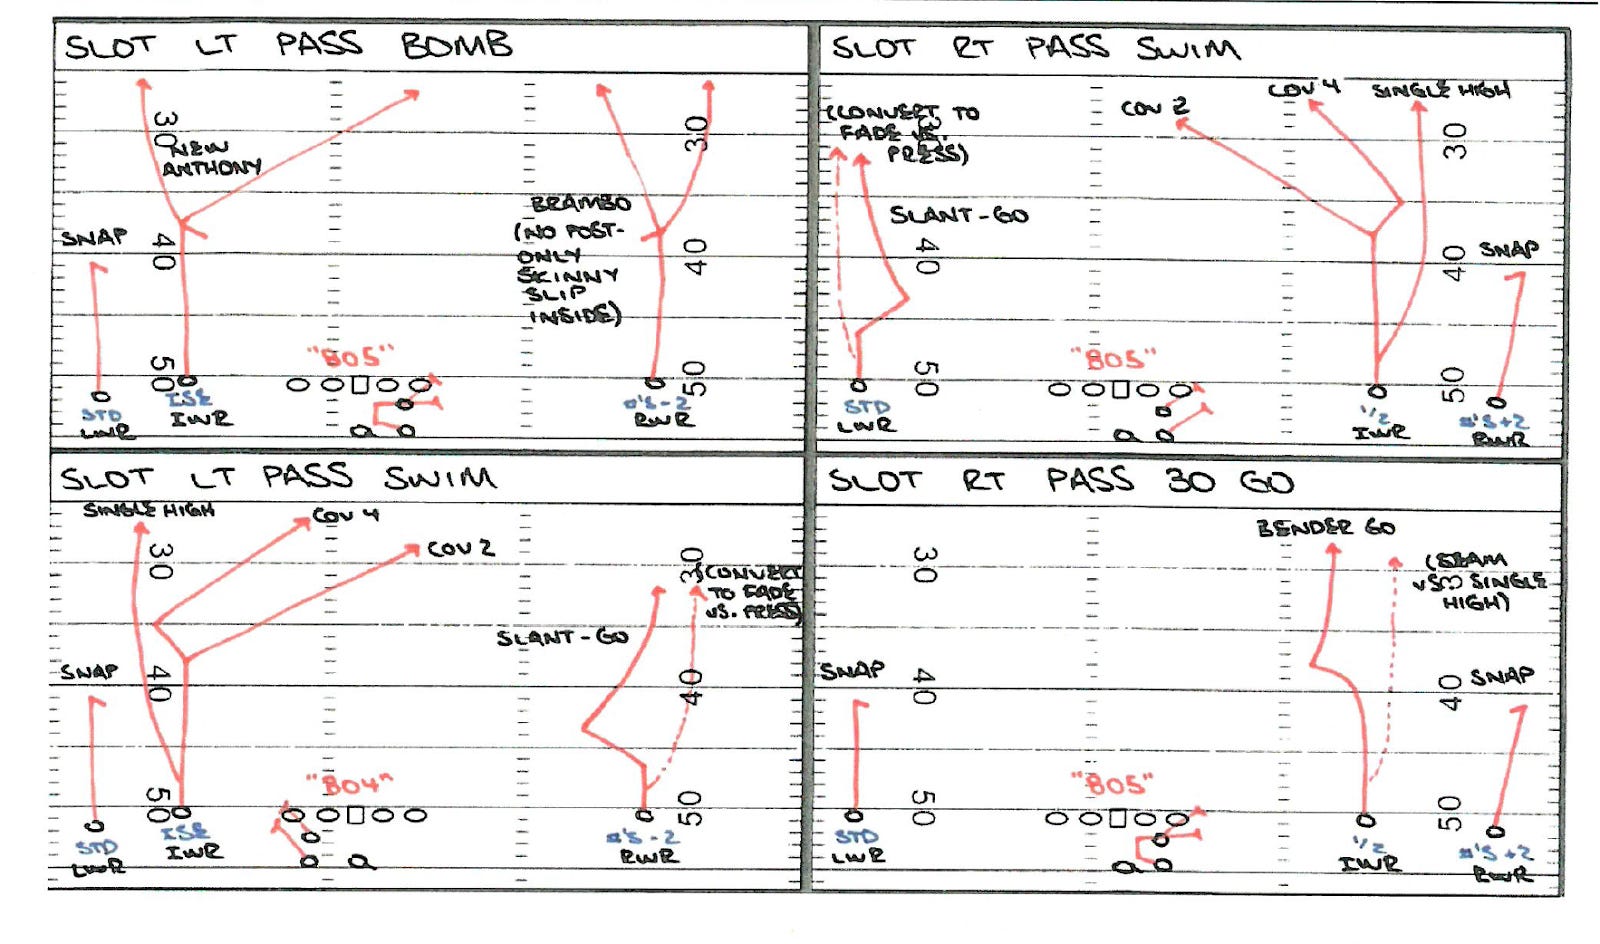 SLOT LT PASS BOMB
30
30
NEW
ANTHONY
BRAMBO
(NO POST-
ONLY
SKINNY
SLIP
INSIDE)
SNAP
40
40
50
"805"
50
STD
LWR
ISE
IWR
#'S-2
RWR
SLOT RT PASS SWIM
(CONVERT TO
FADE VS.
PRESS)
COV 2
COV 4
SINGLE HIGH
30
SLANT-GO
40
40
SNAP
50
"805"
50
STD
LWR
1/2
IWR
#'S+2
RWR
SLOT LT PASS SWIM
SINGLE HIGH
COV 4
COV 2
30
30
(CONVERT
TO FADE
VS. PRESS)
SLANT-GO
SNAP
40
40
50
"804"
50
STD
LWR
ISE
IWR
#'S-2
RWR
SLOT RT PASS 30 GO
BENDER GO
30
(SEAM
VS SINGLE
HIGH)
SNAP
40
40
SNAP
50
"805"
50
STD
LWR
1/2
IWR
#'S+2
RWR